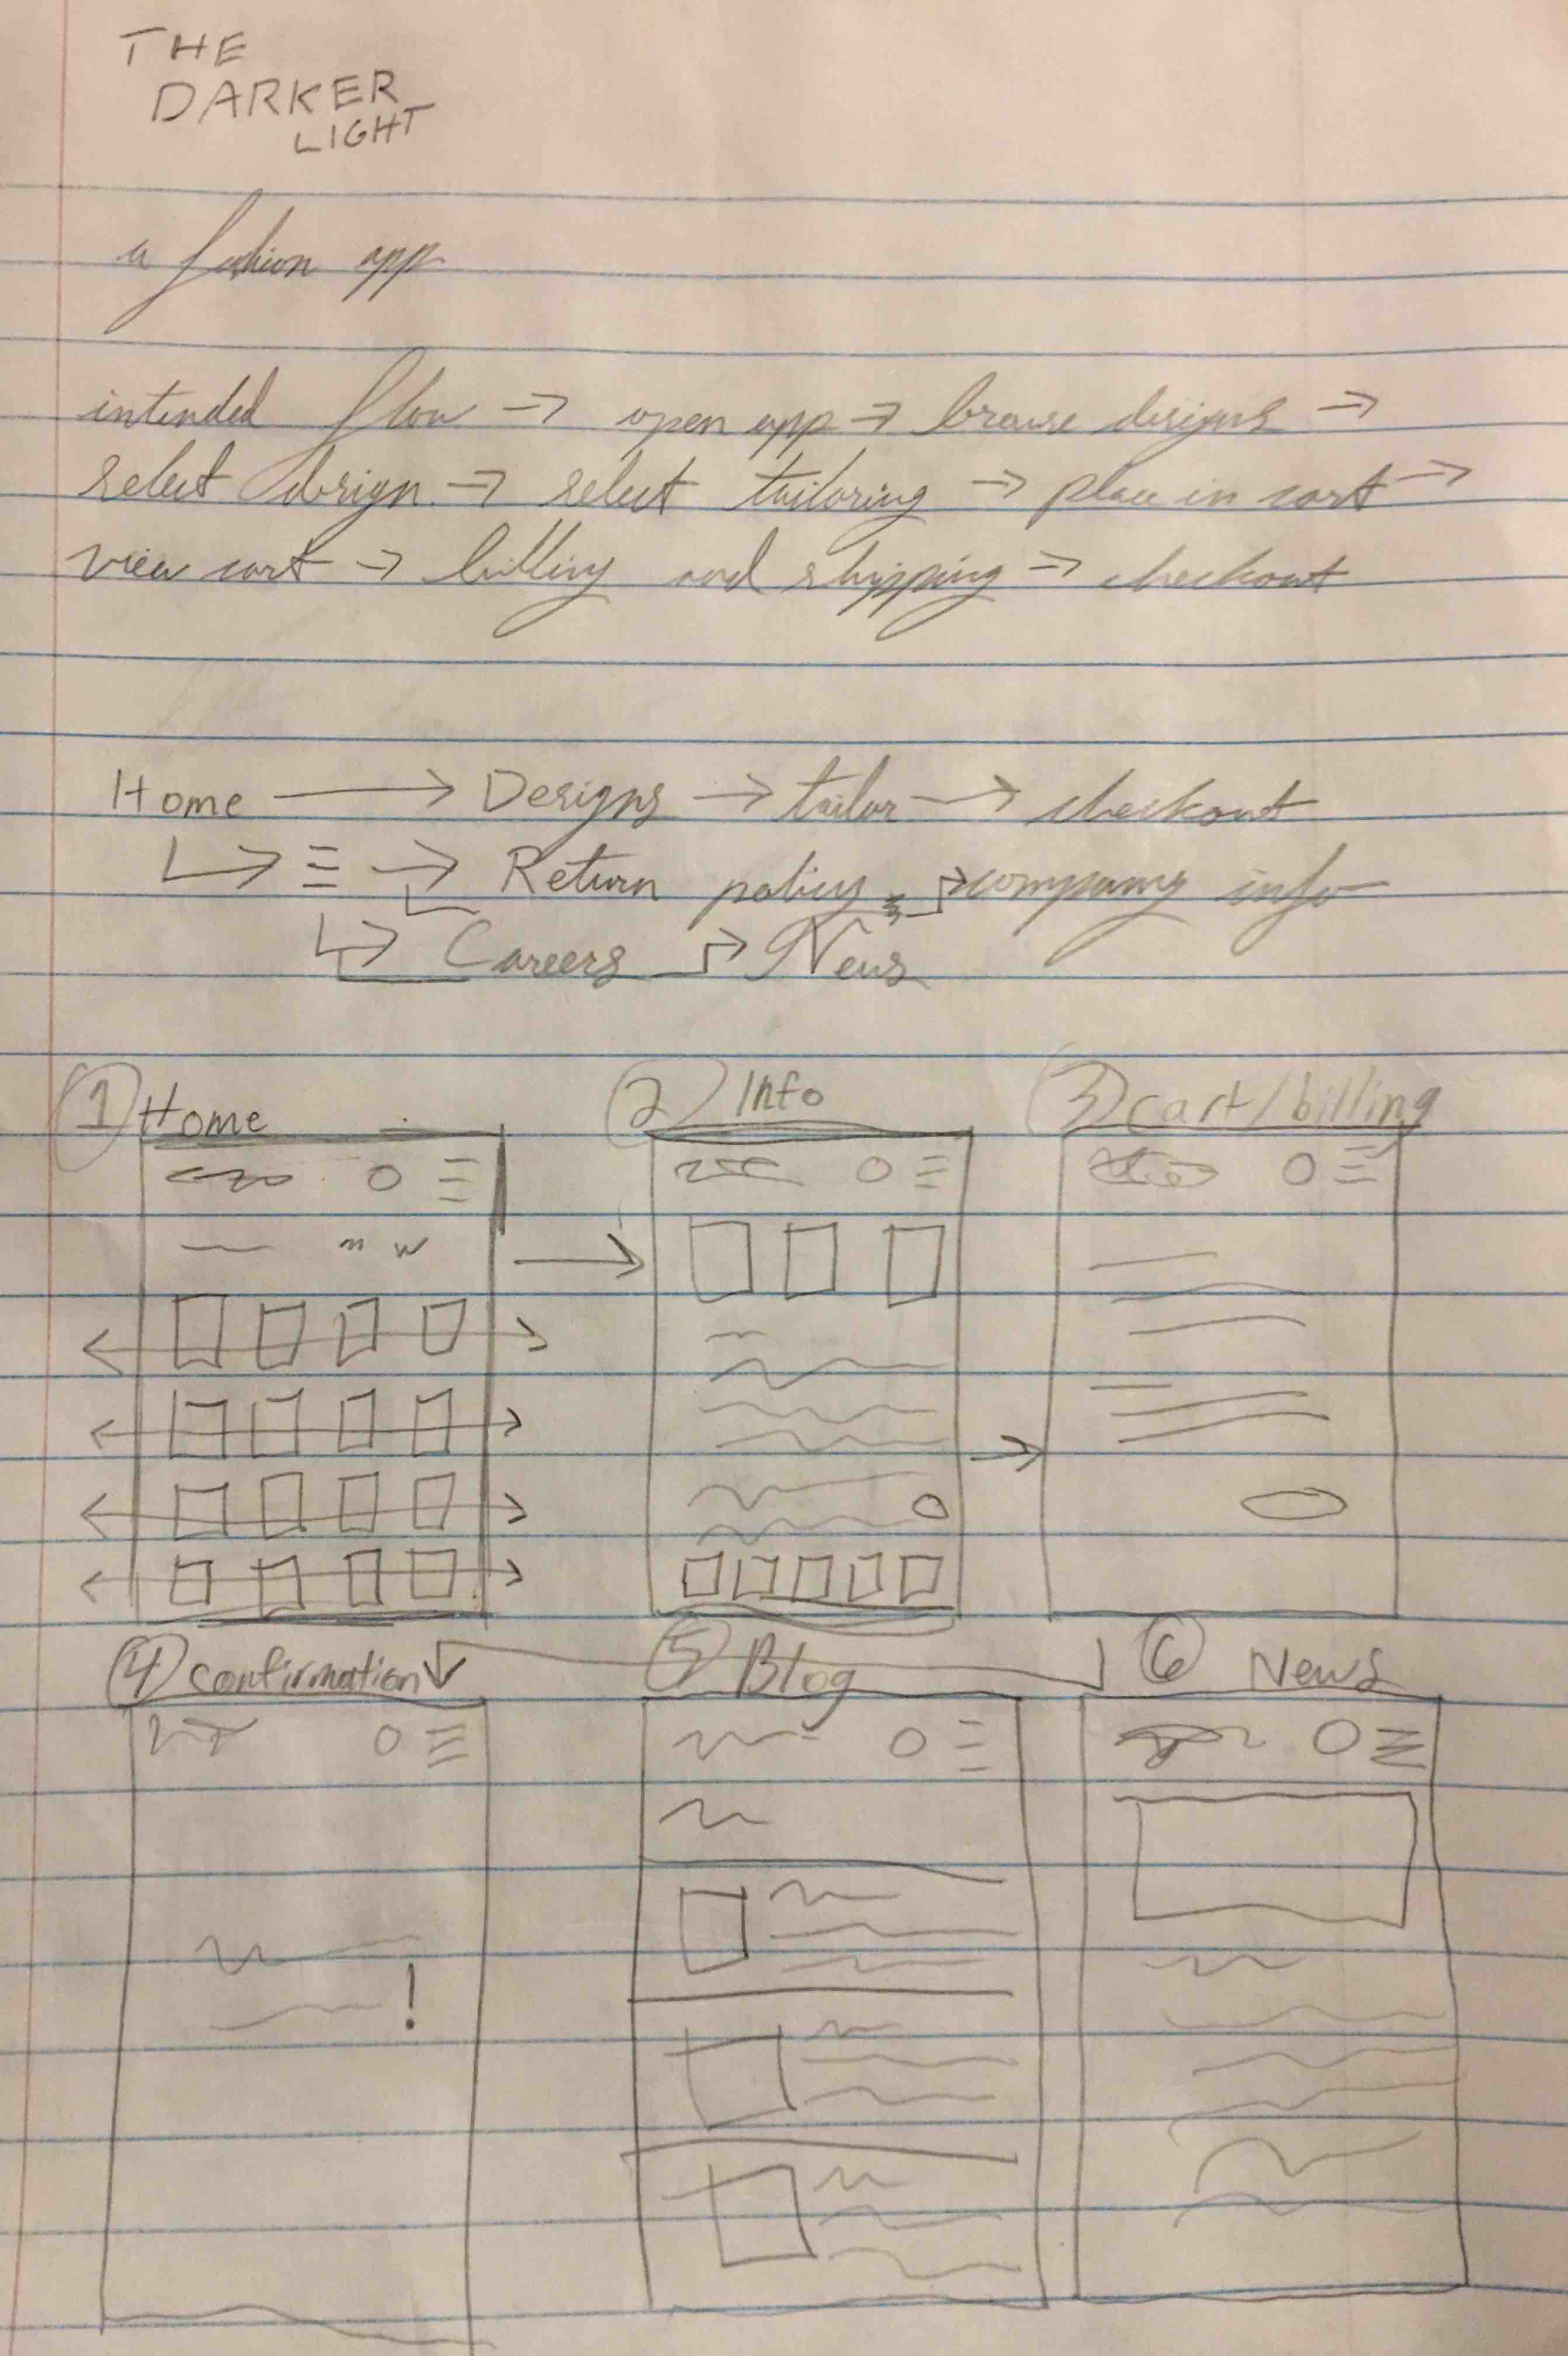 THE
DARKER
LIGHT
a fashion app
intended flow → open app → browse designs →
select design → select tailoring → place in cart →
view cart → billing and shipping → checkout
Home → Designs → tailor → checkout
→ Return policy → company info
→ Careers → News
1 Home
2 Info
3 cart/billing
m w
4 confirmation
5 Blog
6 News
!